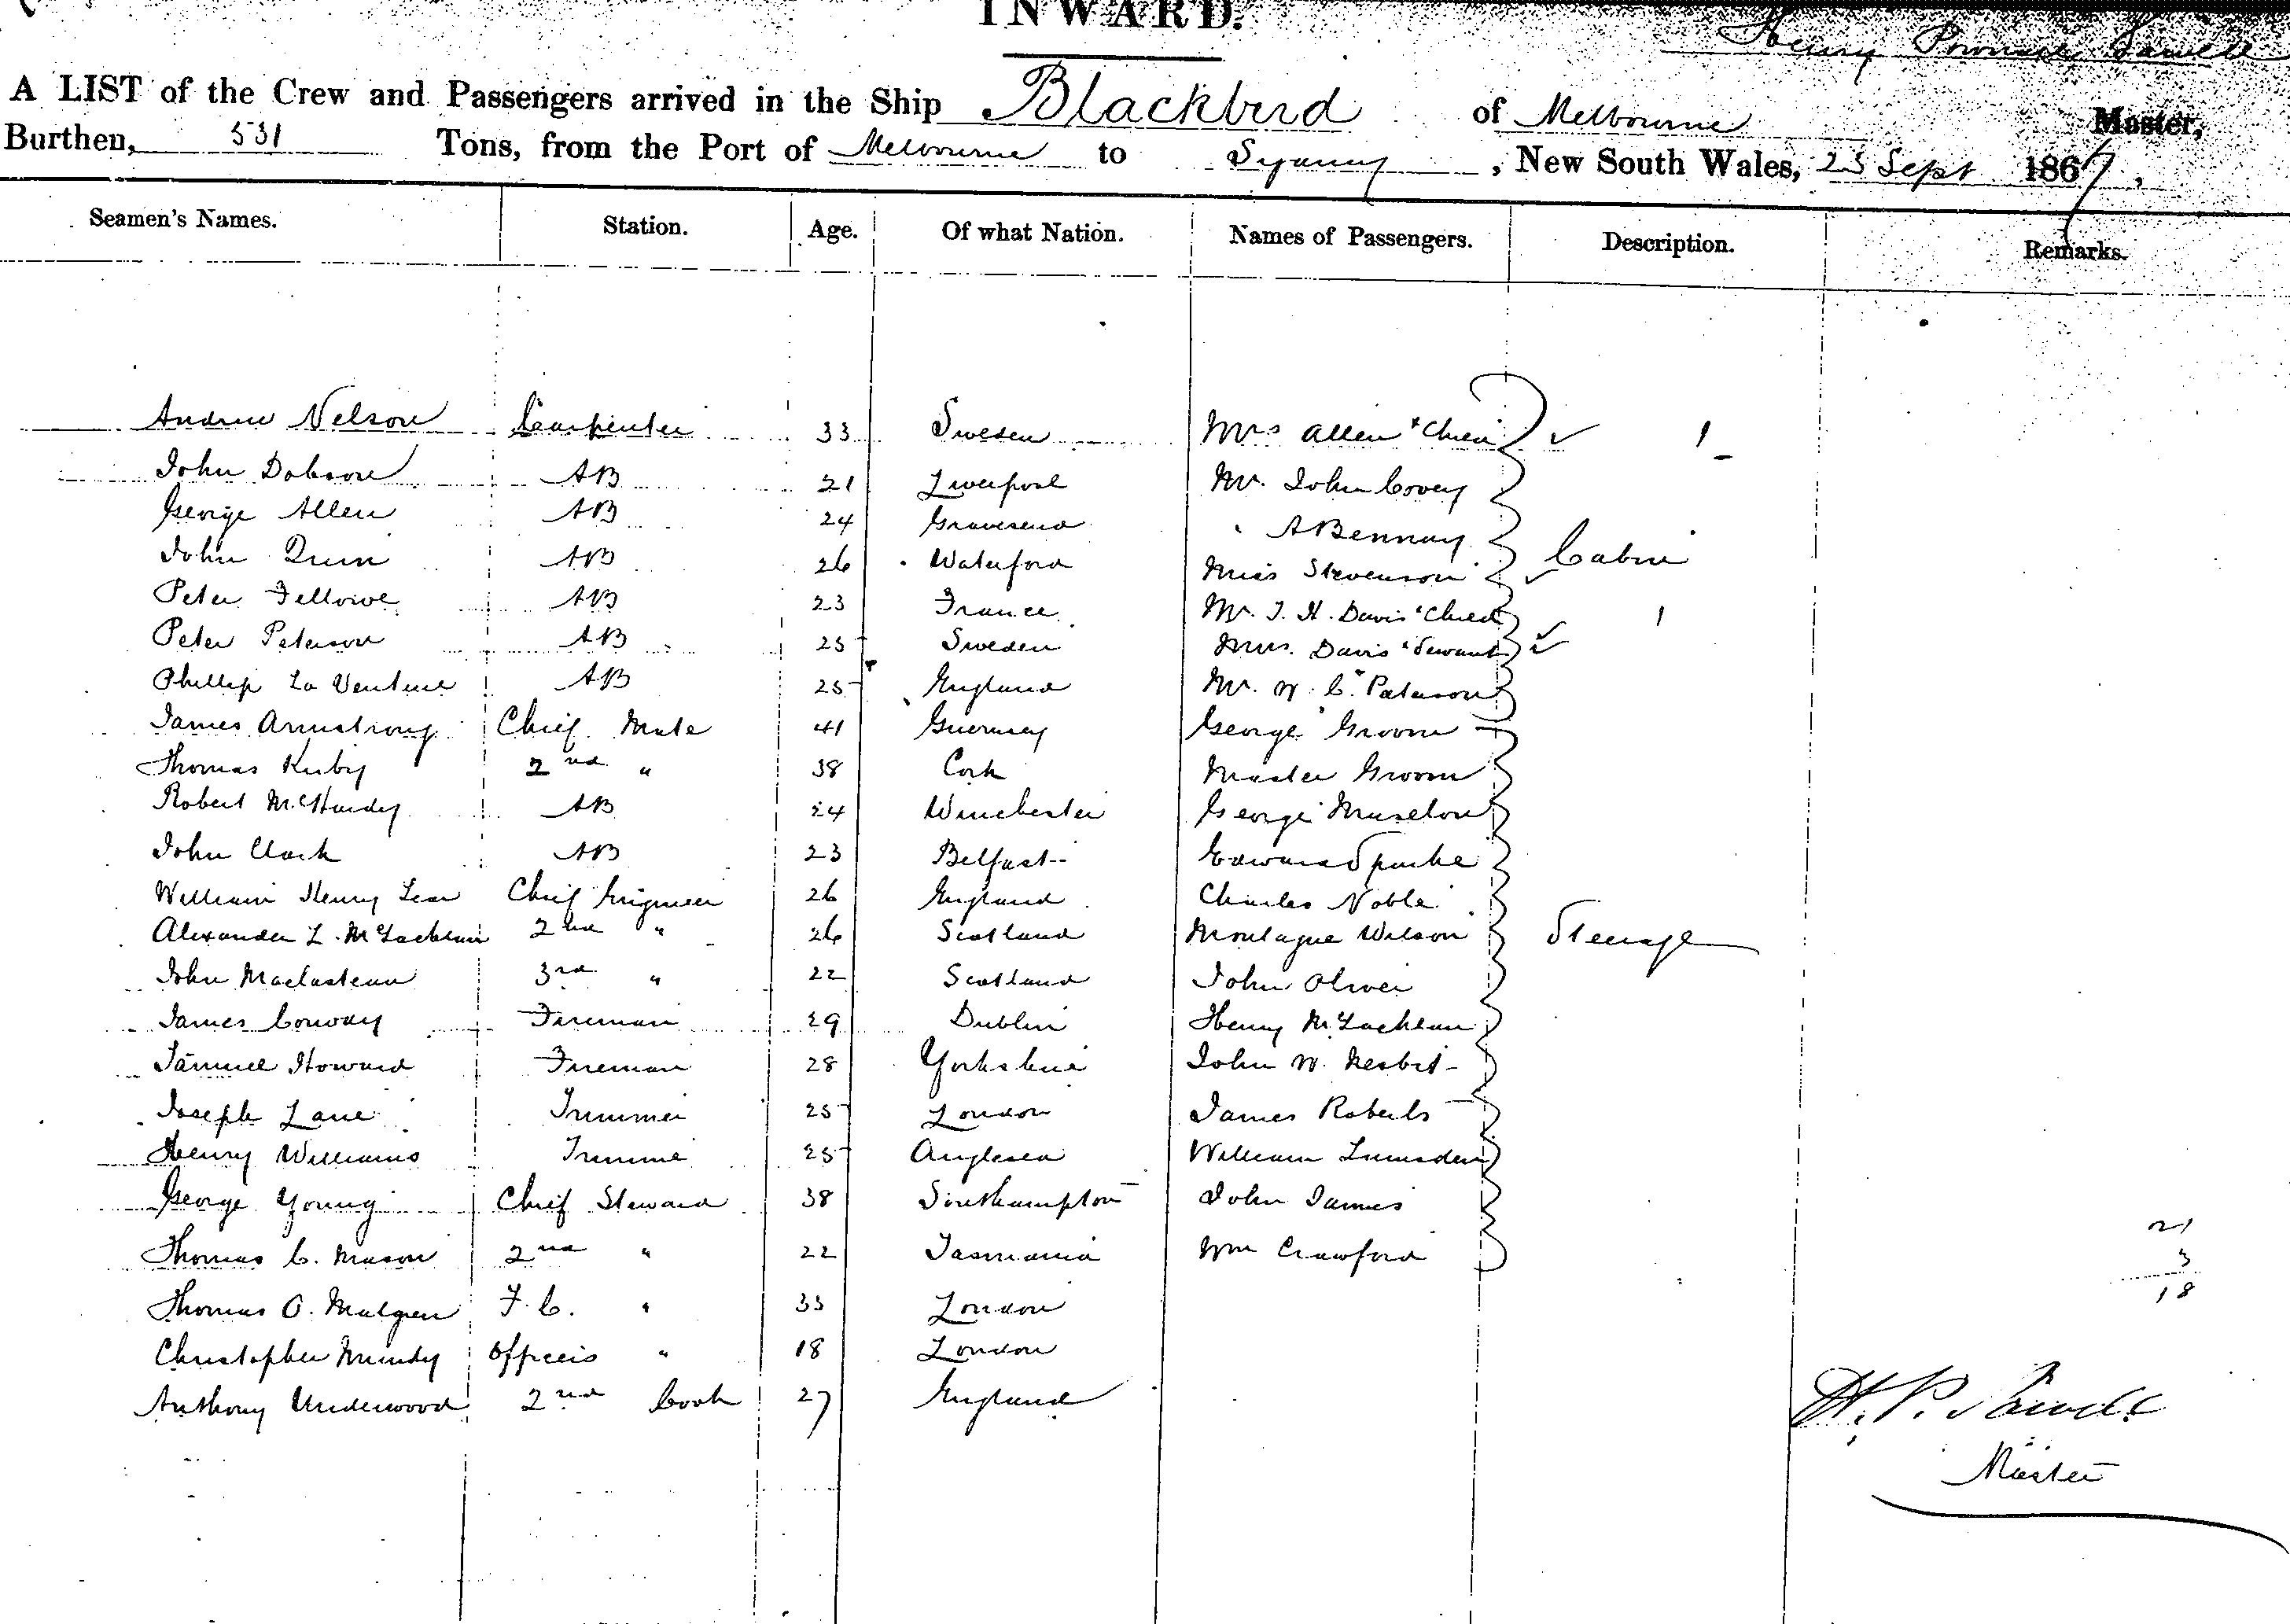 INWARD.
Henry
A LIST of the Crew and Passengers arrived in the Ship Blackbird of Melbourne Master,
Burthen, 531 Tons, from the Port of Melbourne to Sydney, New South Wales, 25 Sept 1867,
Seamen's Names. Station. Age. Of what Nation. Names of Passengers. Description. Remarks.
Andrew Nelson Carpenter 33 Sweden Mrs Allen & Child 1
John Dobson AB 21 Liverpool Mr. John Covey
George Allen AB 24 Gravesend " A Bennay
John Quin AB 26 Waterford Miss Stevenson Cabin
Peter AB 23 France Mr. J. H. Davis & Child 1
Peter Peterson AB 25 Sweden Mrs. Davis & Servant
Phillip La Venture AB 25 England Mr. W. C. Paterson
James Armstrong Chief Mate 41 Guernsey George Groom
Thomas Kirby 2nd " 38 Cork Master Groom
Robert McHardy AB 24 Winchester George
John Clark AB 23 Belfast Edward Sparke
William Henry Chief Engineer 26 England Charles Noble
Alexander L. McLachlan 2nd " 26 Scotland Montague Wilson Steerage
John 3rd " 22 Scotland John Oliver
James Conway Fireman 29 Dublin Henry McLachlan
Samuel Howard Fireman 28 Yorkshire John W. Nesbit
Joseph Lane Trimmer 25 London James Roberts
Henry Williams Trimmer 25 Anglesea William Lumsden
George Young Chief Steward 38 Southampton John James
Thomas C. Mason 2nd " 22 Tasmania Wm Crawford
21
3
18
Thomas O. F. C. " 33 London
Christopher Mundy Officers " 18 London
Anthony Underwood 2nd Cook 27 England
H. P.
Master